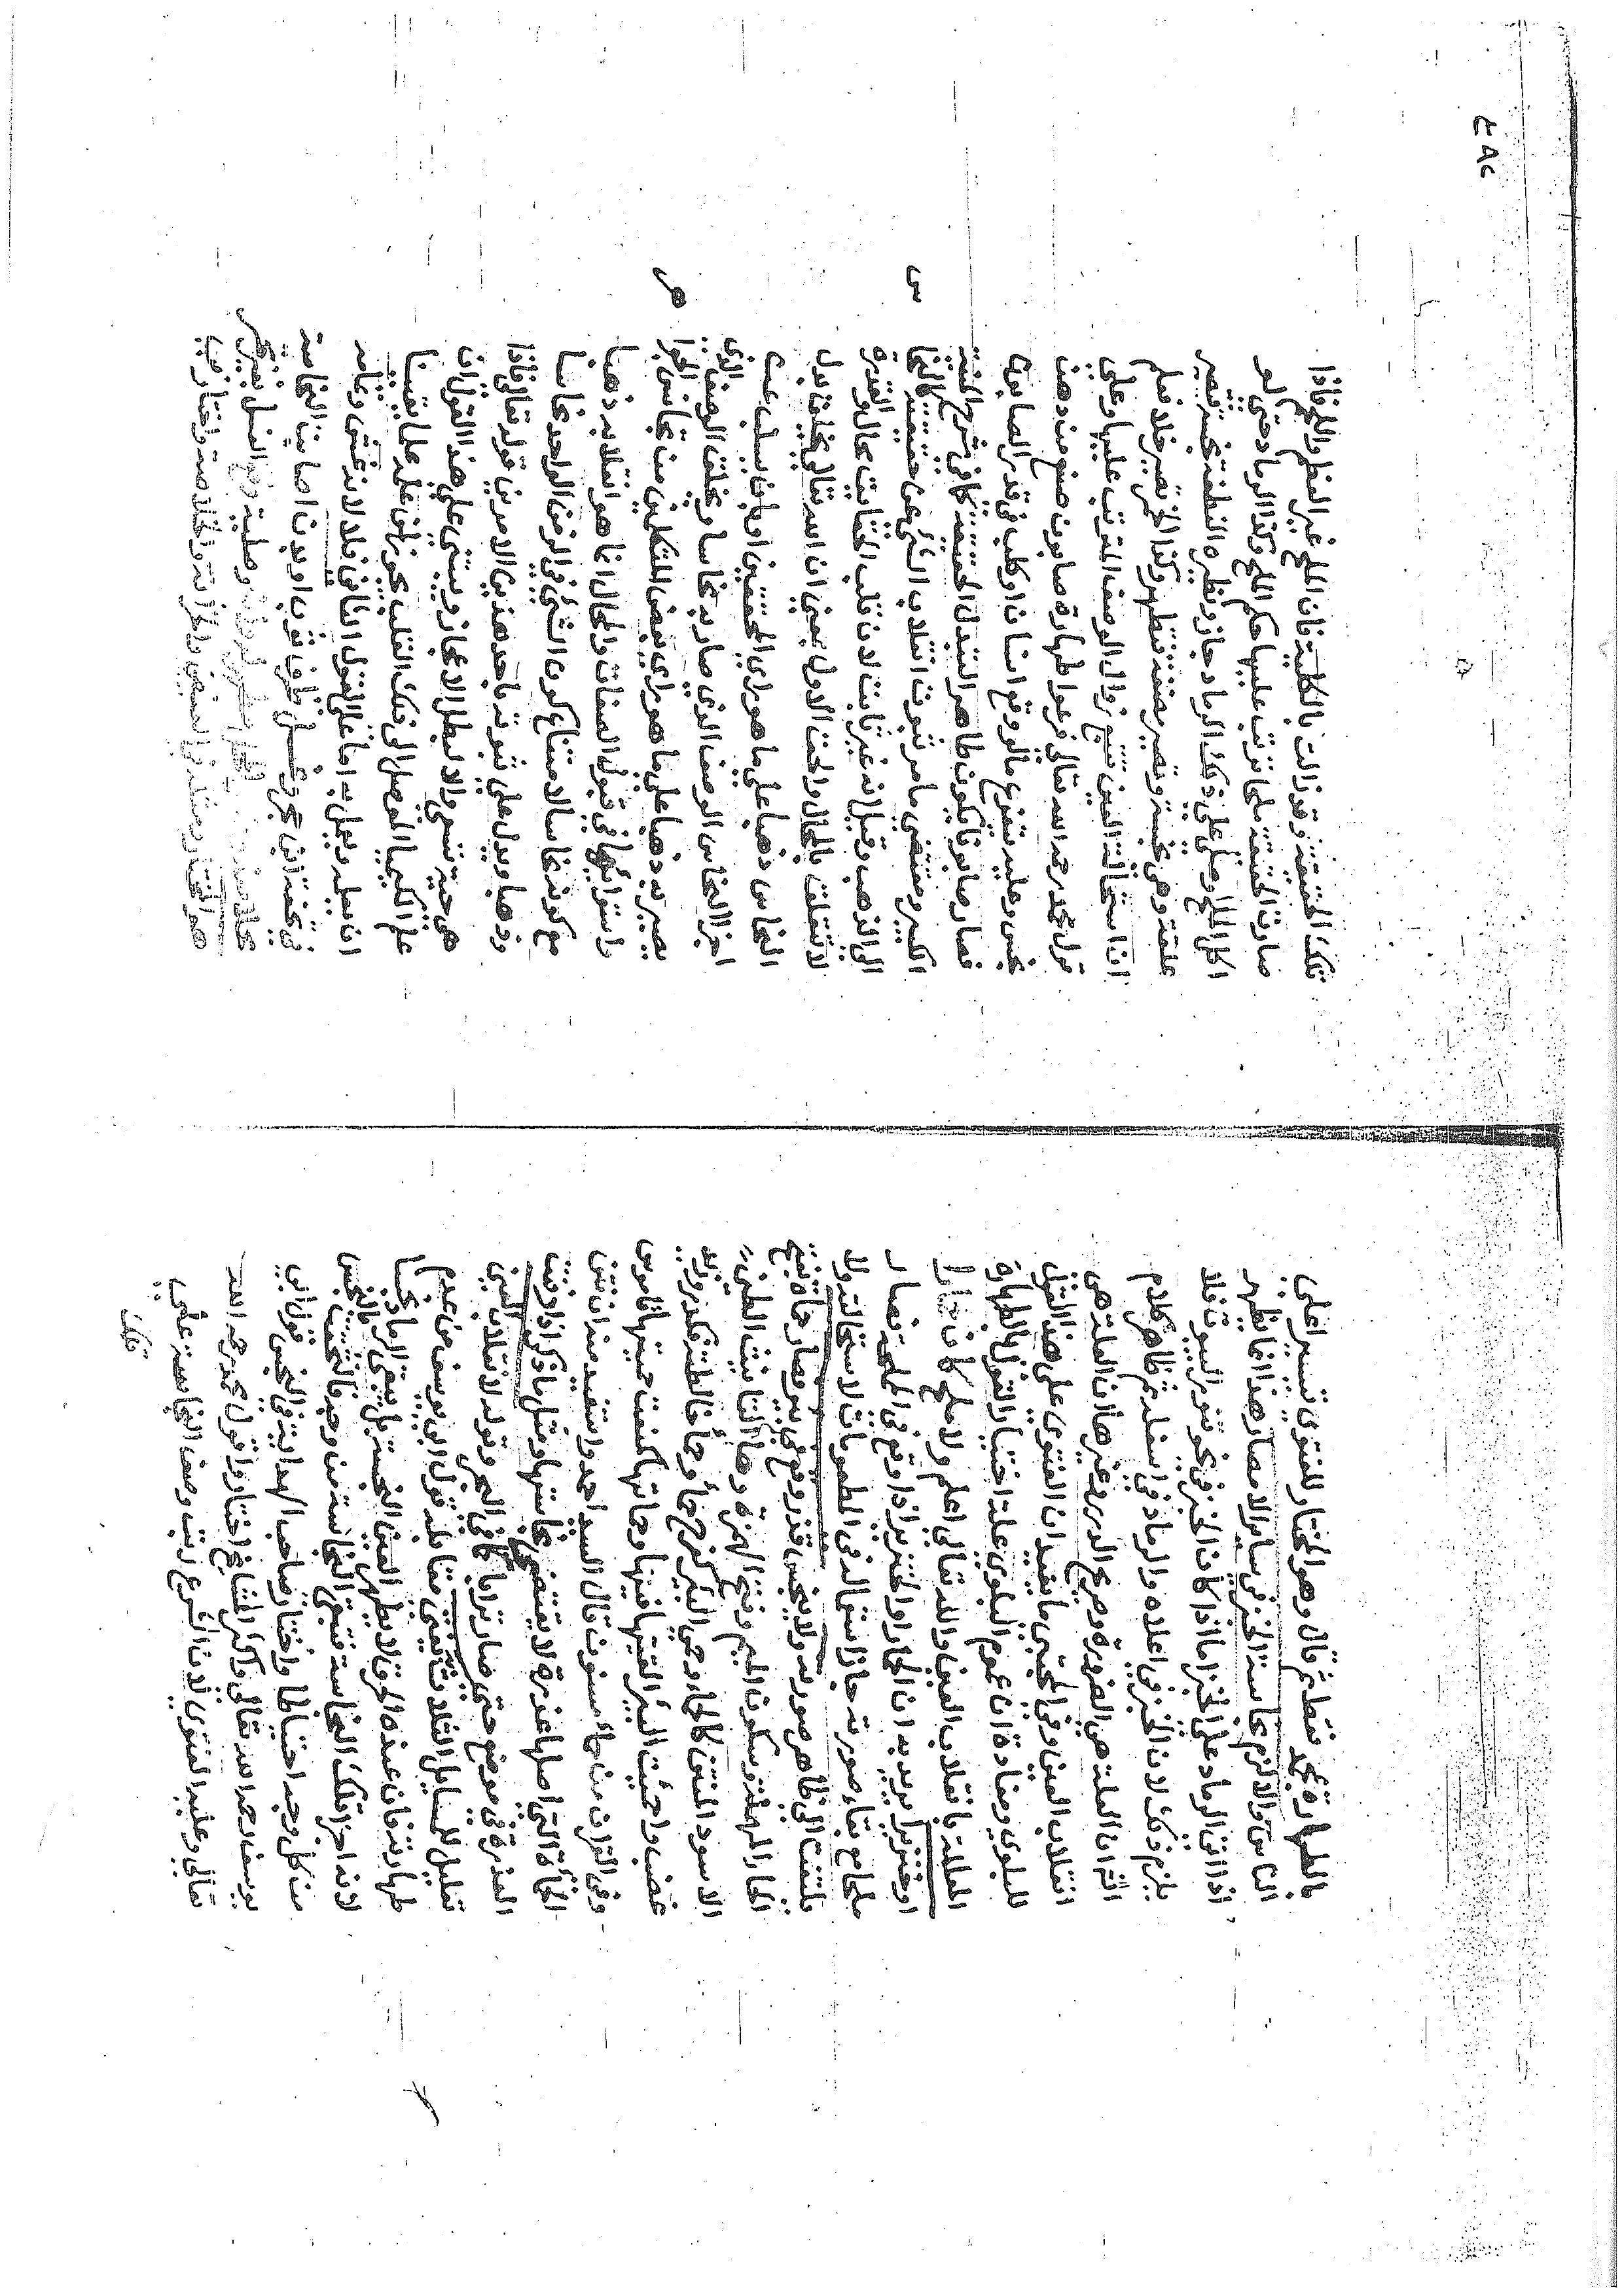 بالطهارة محمد فقط ثم قال وهو المختار للفتوى تيسيرا على
الناس والا لزم نجاسة الخبز في ساير الامصار هذا انما يظهر
اذا القي الرماد على الخبز اما اذا كان الخبز في نحو تنور البيوت فلا
يلزم ذلك لان الخبز في اعلاه والرماد في اسفله ثم ظاهر كلام
الشرح ان العلة هي الضرورة وصريح الدرر وغيرها ان العلة هي
انقلاب العين وفي المجتبى ما يفيد ان الفتوى على هذا القول
للبلوى ومفاده ان عموم البلوى علة اختيار القول بالطهارة
المعللة بانقلاب العين والله تعالى اعلم ولا ملح كان حمارا
او خنزيرا يريد به ان الحمار او الخنزير اذا وقع في المملحة فصار
ملحا مع بقاء صورته جاز استعماله في المطعومات لاستحالته ولا
يلتفت الى ظاهر صورته ولا نجس قذر وقع في بير وصار حمأة بفتح
الحاء المهملة وسكون الميم وفتح الهمزة وهاء التانيث الطين
الاسود المنتن كالحمأ وحمي البير كفرح حمأ وحمأ خالطته فكدر وزيد
غضب واحمئت البير القيتها فيها وحماتها كمنعت قاموس
وفي القران من حمأ مسنون قال السيد احمد واستفيد منه ان نتن
الحمأة التي اصلها عذرة لا يقتضي نجاستها ومثل ما ذكر اذا دفنت
العذرة في موضع حتى صارت ترابا كما في البحر وقوله لانقلاب العين
تعليل للمسايل الثلاث مقابله قول ابي يوسف من عدم
طهارته فان عنده الحرق لا يطهر العين النجسة بل يبقى الرماد نجسا
لانه اجزا تلك النجاسة فتبقى النجاسة من وجه فالتحقت بالنجس
من كل وجه احتياطا واختار صاحب الهداية في التجنيس قول ابي
يوسف رحمه الله تعالى واكثر المشايخ اختاروا قول محمد رحمه الله
تعالى وعليه الفتوى لان الشرع رتب وصف النجاسة على
تلك
تلك الحقيقة وقد زالت بالكلية فان الملح غير العظم واللحم فاذا
صارت الحقيقة ملحا ترتب عليها حكم الملح وكذا الرماد حتى لو
اكل الملح وصلى على ذلك الرماد جاز ونظيره النطفة نجسة تصير
علقة وهي نجسة وتصير مضغة فتطهر وكذا الخمر تصير خلا فعلم
ان استحالة العين تتبع زوال الوصف المرتب عليها وعلى
قول محمد رحمه الله تعالى فرعوا طهارة صابون صنع من دهن
نجس وعليه يتفرع ما لو وقع انسان او كلب في قدر الصابون
فصار صابونا يكون طاهرا لتبدل الحقيقة كما في شرح المنية
الكبير ومقتضى ما مر ثبوت انقلاب الشئ عن حقيقته كالنحاس
الى الذهب وقيل انه غير ثابت لان قلب الحقايق محال والقدرة
لا تتعلق بالمحال والحق الاول بمعنى ان الله تعالى يخلق بدل
النحاس ذهبا على ما هو راي المحققين او بان يسلب عن
اجزا النحاس الوصف الذي صار به نحاسا ويخلق الوصف الذي
يصير به ذهبا على ما هو راي بعض المتكلمين من تجانس الجواهر
واستوائها في قبول الصفات والمحال انما هو انقلابه ذهبا
مع كونه نحاسا لامتناع كون الشئ في الزمن الواحد نحاسا
وذهبا ويدل على ثبوته باحد هذين الامرين قوله تعالى فاذا
هي حية تسعى والا لبطل الاعجاز ويبتنى على هذا القول ان
علم الكيميا الموصل الى ذلك القلب يجوز لمن علمه علما يقينيا
ان يعلمه ويعمل به اما على القول الثاني فلا لانه غش وتمامه
في تحفة ابن حجر وغسل طرف ثوب او بدن اصابت النجاسة